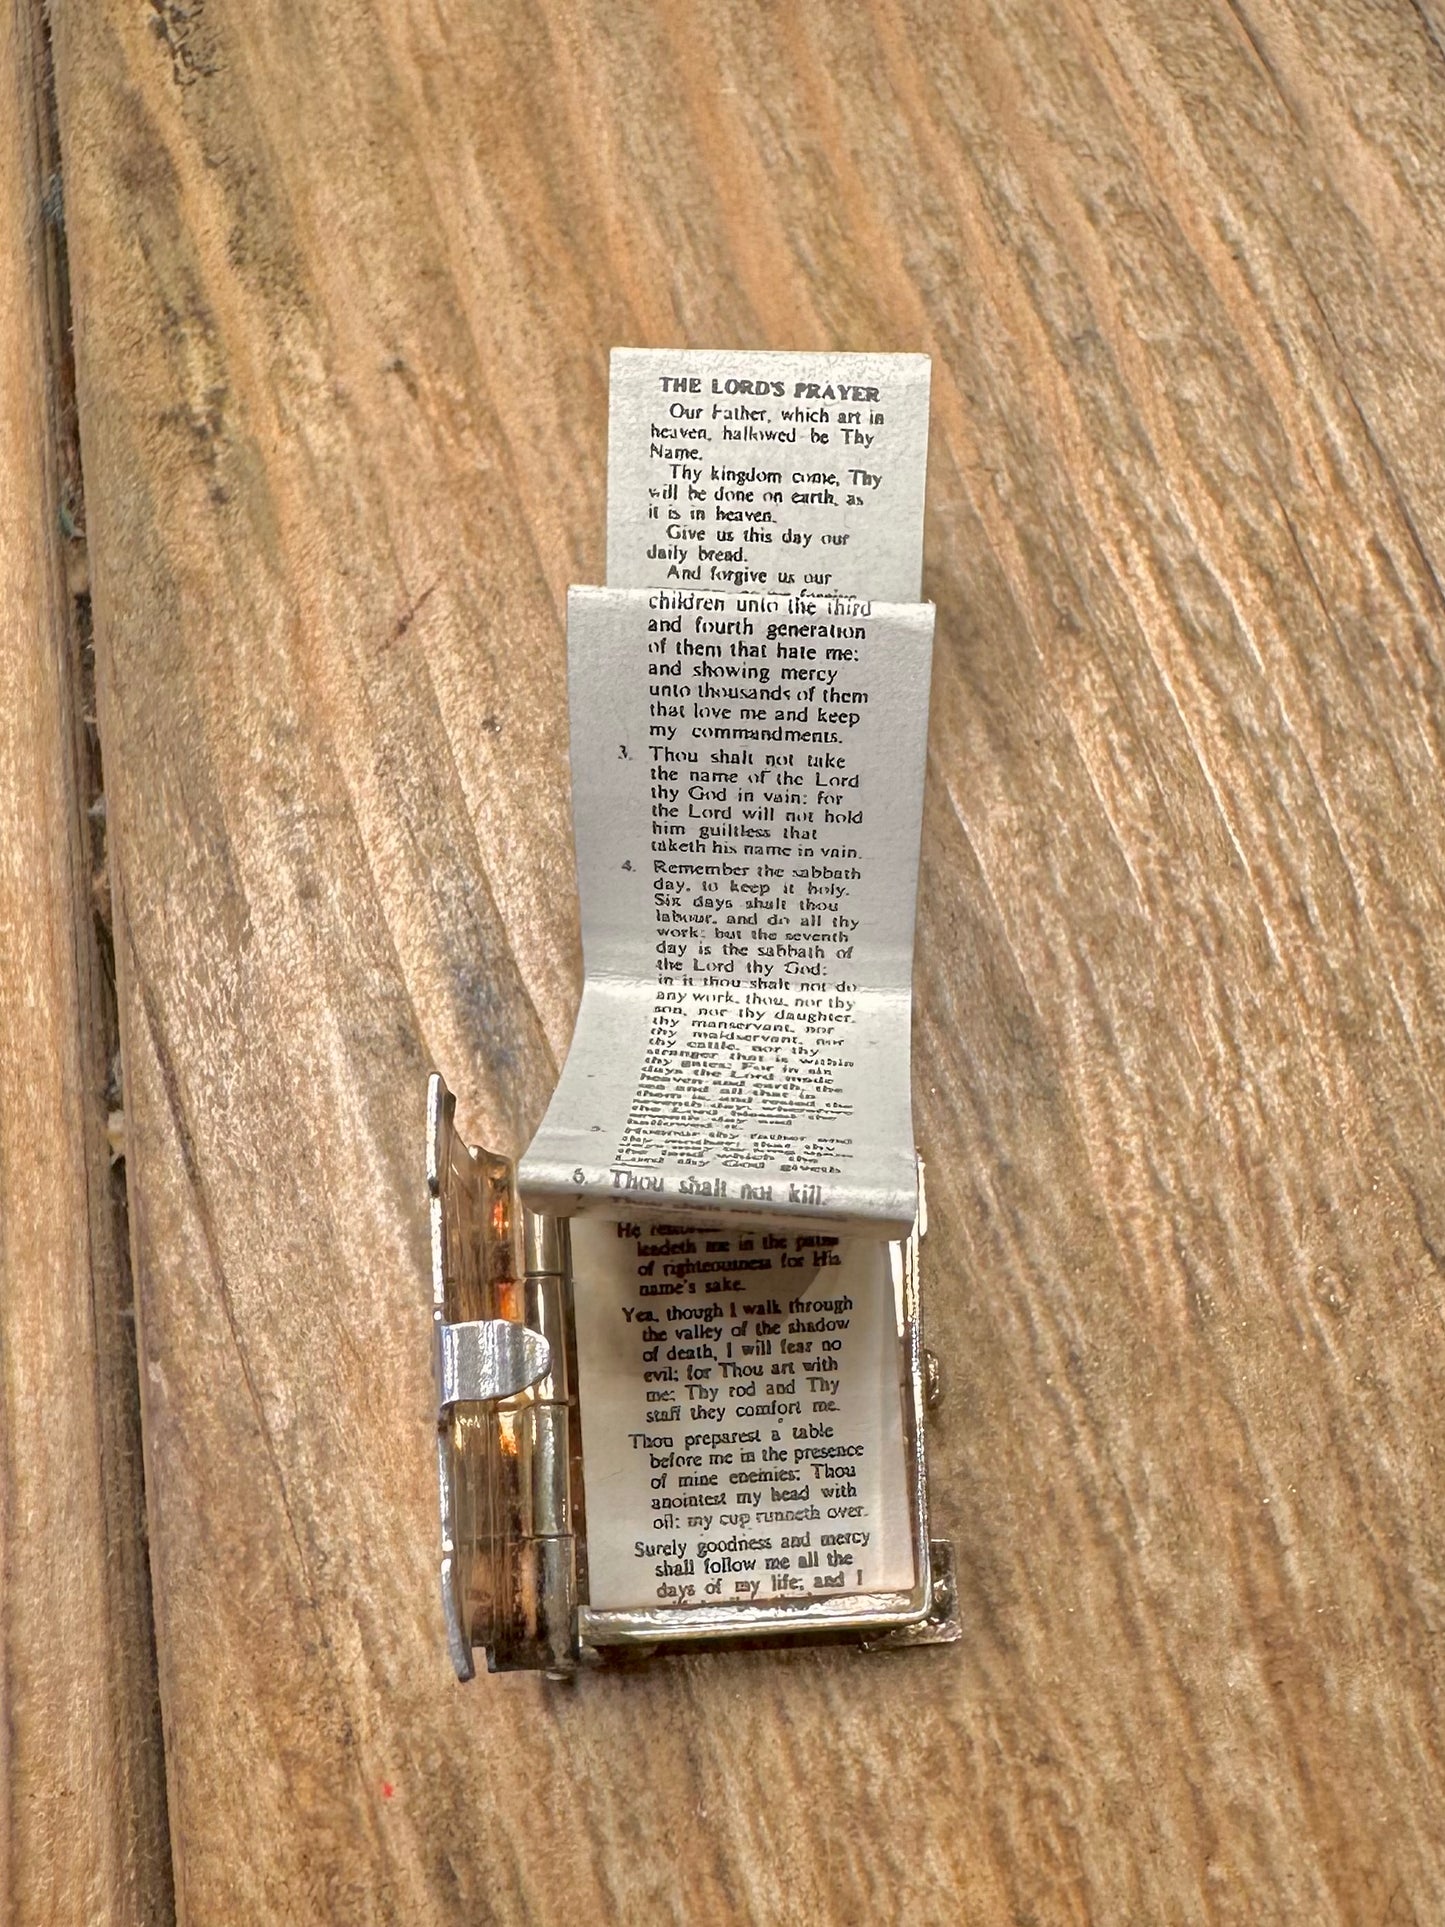 THE LORD'S PRAYER
Our Father, which art in
heaven, hallowed be Thy
Name.
Thy kingdom come, Thy
will be done on earth, as
it is in heaven.
Give us this day our
daily bread.
And forgive us our
children unto the third
and fourth generation
of them that hate me:
and showing mercy
unto thousands of them
that love me and keep
my commandments.
3. Thou shalt not take
the name of the Lord
thy God in vain: for
the Lord will not hold
him guiltless that
taketh his name in vain.
4. Remember the sabbath
day, to keep it holy.
Six days shalt thou
labour, and do all thy
work: but the seventh
day is the sabbath of
the Lord thy God:
in it thou shalt not do
any work, thou, nor thy
son, nor thy daughter,
thy manservant, nor
thy maidservant, nor
thy cattle, nor thy
stranger that is within
thy gates: For in six
days the Lord made
heaven and earth, the
sea and all that in
them is, and rested the
seventh day: wherefore
the Lord blessed the
seventh day and
hallowed it.
5. Honour thy father and
thy mother: that thy
the land which the
Lord thy God giveth
6. Thou shalt not kill.
He
leadeth me in the paths
of righteousness for His
name's sake.
Yea, though I walk through
the valley of the shadow
of death, I will fear no
evil: for Thou art with
me: Thy rod and Thy
staff they comfort me.
Thou preparest a table
before me in the presence
of mine enemies: Thou
anointest my head with
oil: my cup runneth over.
Surely goodness and mercy
shall follow me all the
days of my life: and I